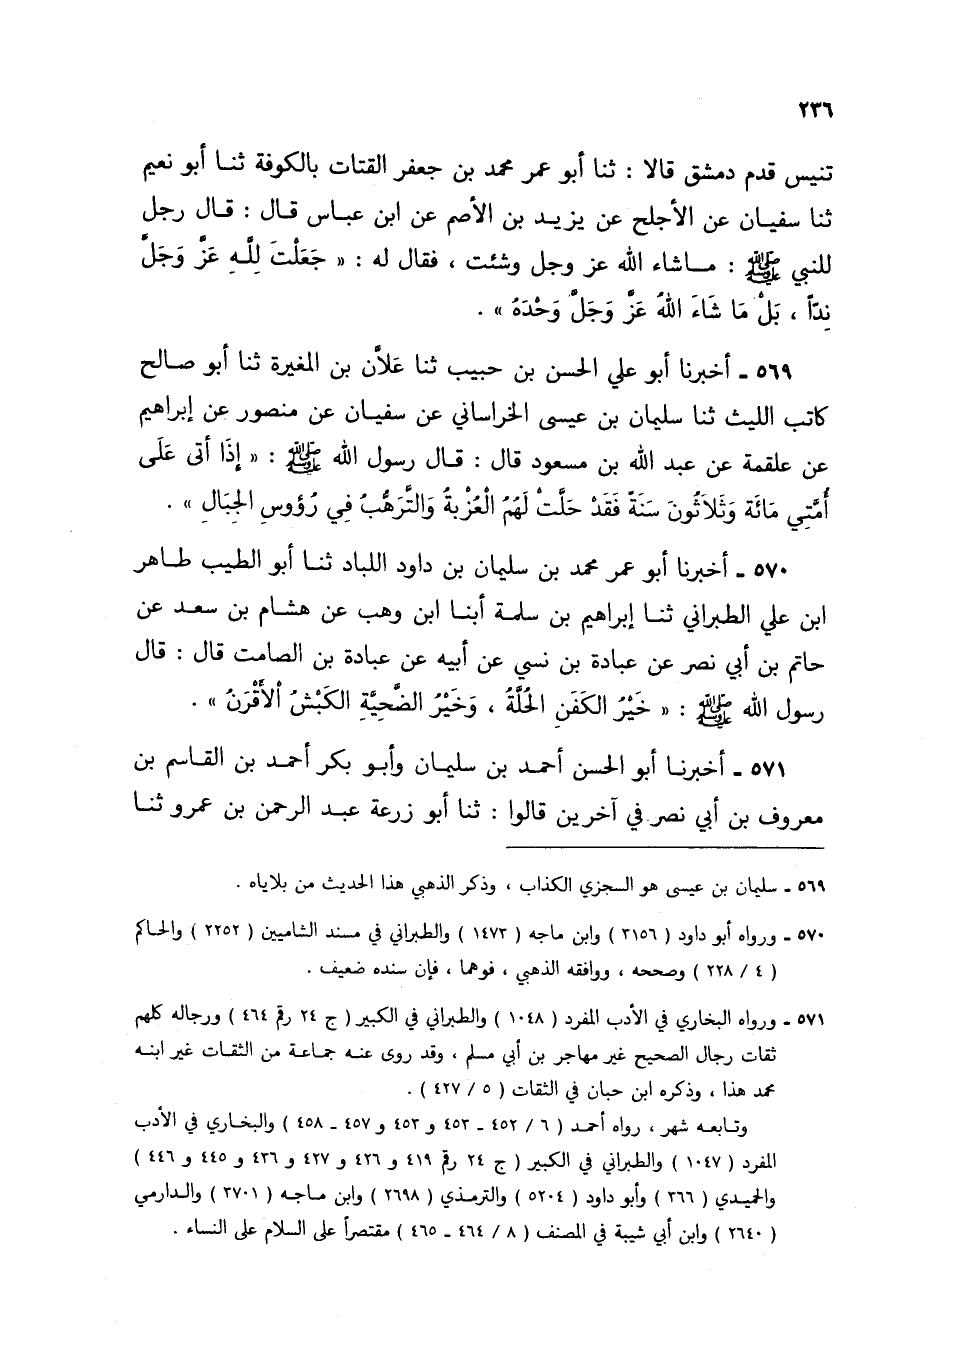 ٢٣٦
تنيس قدم دمشق قالا : ثنا أبو عمر محمد بن جعفر القتات بالكوفة ثنا أبو نعيم
ثنا سفيان عن الأجلح عن يزيد بن الأصم عن ابن عباس قال : قال رجل
للنبي ﷺ : ماشاء الله عز وجل وشئت ، فقال له : « جَعَلْتَ لِلَّهِ عَزَّ وَجَلَّ
نِدّاً ، بَلْ مَا شَاءَ اللهُ عَزَّ وَجَلَّ وَحْدَهُ » .
٥٦٩ ـ أخبرنا أبو علي الحسن بن حبيب ثنا عَلاَّن بن المغيرة ثنا أبو صالح
كاتب الليث ثنا سليمان بن عيسى الخراساني عن سفيان عن منصور عن إبراهيم
عن علقمة عن عبد الله بن مسعود قال : قال رسول الله ﷺ : « إِذَا أتى عَلَى
أُمَّتِي مَائَة وَثَلاَثُونَ سَنَةً فَقَدْ حَلَّتْ لَهُمُ الْعُزْبةُ وَالتَّرَهُّبُ فِي رُؤُوسِ الجِبَالِ » .
٥٧٠ ـ أخبرنا أبو عمر محمد بن سليمان بن داود اللباد ثنا أبو الطيب طاهر
ابن علي الطبراني ثنا إبراهيم بن سلمة أبنا ابن وهب عن هشام بن سعد عن
حاتم بن أبي نصر عن عبادة بن نسي عن أبيه عن عبادة بن الصامت قال : قال
رسول الله ﷺ : « خَيْرُ الكَفَنِ الحُلَّةُ ، وَخَيْرُ الضَّحِيَّةِ الكَبْشُ الأَقْرَنُ » .
٥٧١ ـ أخبرنا أبو الحسن أحمد بن سليمان وأبو بكر أحمد بن القاسم بن
معروف بن أبي نصر في آخرين قالوا : ثنا أبو زرعة عبد الرحمن بن عمرو ثنا
٥٦٩ ـ سليمان بن عيسى هو السجزي الكذاب ، وذكر الذهبي هذا الحديث من بلاياه .
٥٧٠ ـ ورواه أبو داود ( ٣١٥٦ ) وابن ماجه ( ١٤٧٣ ) والطبراني في مسند الشاميين ( ٢٢٥٢ ) والحاكم
( ٤ / ٢٢٨ ) وصححه ، ووافقه الذهبي ، فوهما ، فإن سنده ضعيف .
٥٧١ ـ ورواه البخاري في الأدب المفرد ( ١٠٤٨ ) والطبراني في الكبير ( ج ٢٤ رقم ٤٦٤ ) ورجاله كلهم
ثقات رجال الصحيح غير مهاجر بن أبي مسلم ، وقد روى عنه جماعة من الثقات غير ابنه
محمد هذا ، وذكره ابن حبان في الثقات ( ٥ / ٤٢٧ ) .
وتابعه شهر ، رواه أحمد ( ٦ / ٤٥٢ ـ ٤٥٣ و ٤٥٣ و ٤٥٧ ـ ٤٥٨ ) والبخاري في الأدب
المفرد ( ١٠٤٧ ) والطبراني في الكبير ( ج ٢٤ رقم ٤١٩ و ٤٢٦ و ٤٢٧ و ٤٣٦ و ٤٤٥ و ٤٤٦ )
والحميدي ( ٣٦٦ ) وأبو داود ( ٥٢٠٤ ) والترمذي ( ٢٦٩٨ ) وابن ماجه ( ٣٧٠١ ) والدارمي
( ٢٦٤٠ ) وابن أبي شيبة في المصنف ( ٨ / ٤٦٤ ـ ٤٦٥ ) مقتصراً على السلام على النساء .